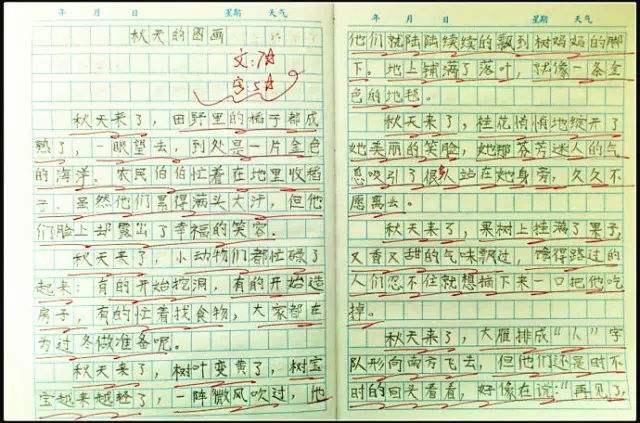 年 月 日 星期 天气
秋天的图画
文:7☆
字:5☆
秋天来了，田野里的稻子都成
熟了，一眼望去，到处是一片金色
的海洋。农民伯伯忙着在地里收稻
子，虽然他们累得满头大汗，但他
们脸上却露出了幸福的笑容。
秋天来了，小动物们都忙碌了
起来：有的开始挖洞，有的开始造
房子，有的忙着找食物，大家都在
为过冬做准备呢。
秋天来了，树叶变黄了，树宝
宝越来越轻了，一阵微风吹过，他
年 月 日 星期 天气
他们就陆陆续续的飘到树妈妈的脚
下。地上铺满了落叶，就像一条金
色的地毯。
秋天来了，桂花悄悄地绽开了
她美丽的笑脸，她那芬芳迷人的气
息吸引了很多人站在她身旁，久久不
愿离去。
秋天来了，果树上挂满了果子，
又香又甜的气味飘过，馋得路过的
人们忍不住就想摘下来一口把他吃
掉。
秋天来了，大雁排成“人”字
队形向南方飞去，但他们还是时不
时的回头看看，好像在说：“再见了，